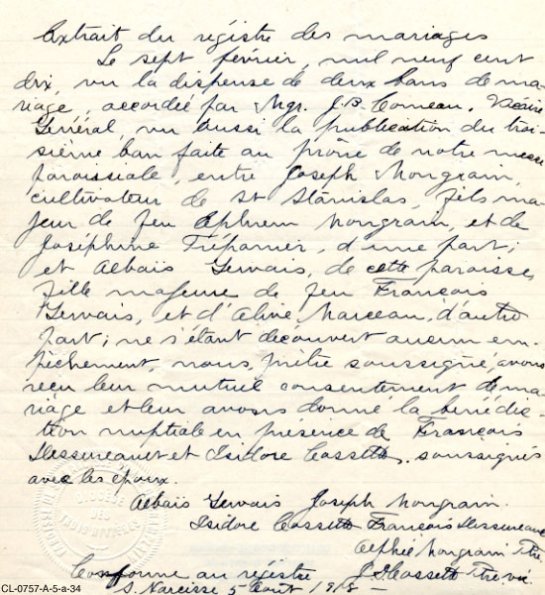 Extrait du régistre des mariages
Le sept février, mil neuf cent
dix, vu la dispense de deux bans de ma-
riage, accordée par Mgr. J.B. Comeau, Vicaire
Général, vu aussi la publication du troi-
sième ban faite au prône de notre messe
paroissiale, entre Joseph Mongrain,
cultivateur de St Stanislas, fils ma-
jeur de feu Ephrem Mongrain, et de
Joséphine Trépanier, d'une part;
et Albaïs Gervais, de cette paroisse,
fille majeure de feu François
Gervais, et d'Aline Marceau, d'autre
part; ne s'étant découvert aucun em-
pêchement, nous, prêtre soussigné, avons
reçu leur mutuel consentement de ma-
riage et leur avons donné la bénédic-
tion nuptiale en présence de François
Dessureault et Isidore Cossette, soussignés
avec les époux.
Albaïs Gervais Joseph Mongrain.
Isidore Cossette François Dessureault
Mongrain Ptre.
Conforme au régistre Cossette Ptre. vic.
S. Narcisse 5 Août 1918 –
DIOCÈSE
DES
TROIS-RIVIÈRES
CL-0757-A-5-a-34